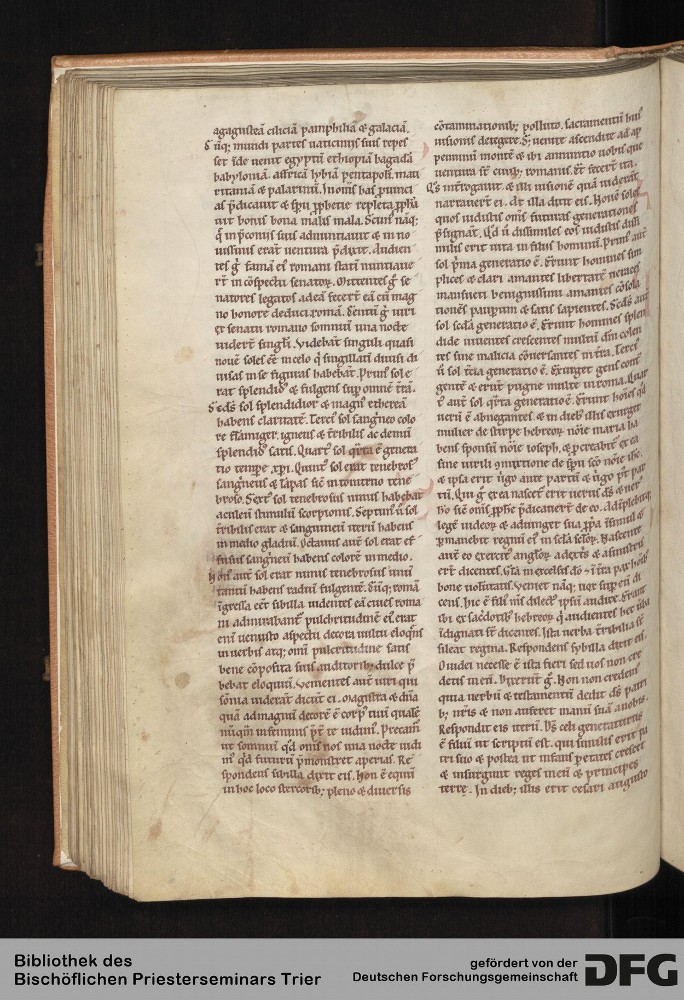 agaguldeā ciliciā pamphiliā & galaciā.
Sūq; mundi partes uaticinijs suis reples
set īde uenit egyptū ethiopiā bagadā
babyloniā. affricā lybiā pentapolī. mau
ritaniā & palarinū. In om̄s has p̄uinci
as p̄dicauit & sp̄u p̄phetie repleta p̄phā
uit bonis bona malis mala. Scim᷒ nāq;
q̄ in p̄coniis suis adnuntiauit & in no
uissimis erāt uentura p̄dixit. Audien
tes ḡ famā ei᷒ romani statī nuntiaue
rt̄ in cōspectu senatoꝝ. Mittentes ḡ se
natores legatos ad eā fecert̄ eā cū mag
no honore deduci romā. Centū ḡ uiri
ex senatu romano somniū una nocte
uidert̄ singłi. Videbāt singuli quasi
nouē soles ēē in celo q̄ singillati diuisi di
uisas in se figuras habebāt. Prim᷒ sol e
rat splendid᷒ & fulgens sup̄ omnē t̄rā.
Scd̄s sol splendidior & magn᷒ etheream
habens claritatē. Terci᷒ sol sangneo colo
re flāmiger. igneus & t̄ribilis ac demū
splendid᷒ satis. Quart᷒ sol
tio tempe xp̄i. Quint᷒ sol erat tenebros᷒
sangneus & lāpas sic̄ in tonitruo tene
broso. Sext᷒ sol tenebrosus nimis habebat
aculeū stimulū scorpionis. Septim᷒ ū sol
t̄ribilis erat & sanguineū iterū habens
in medio gladiū. Octauus aut̄ sol erat ef
fusus sangneū habens colorē in medio.
Non᷒ aut̄ sol erat nimis tenebrosus unū
tantū habens radiū fulgentē. Cūq; romā
īgressa eēt sibilla uidentes eā ciues roma
ni admirabant᷒ pulchritudinē ei᷒ erat
enī uenusto aspectu decora uultu eloquēs
in uerbis atq; omī pulcritudine satis
bene cōposita suis auditorib; dulce p̄
bebat eloquiū. Venientes aut̄ uiri qui
sōnia uiderāt dicūt ei. Magistra & dn̄a
quā ad magnū decorē ē corp᷒ tuū quale
nūqm̄ in feminis p̄t̄ te uidim᷒. Precam̄
ut somniū qd̄ om̄s nos una nocte uidi
m᷒ qd̄ futurū p̄monstret aperias. Re
spondens sibilla dixit eis. Non ē equū
in hoc loco stercorib; pleno & diuersis
cōtaminationib; polluto. sacramentū hui᷒
uisionis detegere. S; uenite ascendite ad ap
penninū montē & ibi annuntio uobis que
uentura st̄ ciuib; romanis. Et fecert̄ ita.
Q᷒s int̄rogauit & illi uisionē quā uiderāt
narrauert̄ ei. At illa dixit eis. Nouē soles
quos uidistis om̄s futuras generationes
p̄signāt. Qd̄ ū dissimiles eos uidistis dissi
milis erit uita in filiis hominū. Prim᷒ aut̄
sol p̄ma generatio ē. Erunt homines sim
plices & clari amantes libertatē ueraces
mansueti benignissimi amantes cōsola
tionēs paupum & satis sapientes. Scd̄s aut̄
sol scd̄a generatio ē. Erunt homines splen
dide uiuentes crescentes multū dm̄ colen
tes sine malicia cōuersantes in t̄ra. Terci᷒
ū sol t̄cia generatio ē. Exurget gens cont̄
gentē & erūt pugne multe in roma. Quar
t᷒ aut̄ sol q̄rta generatio ē. Erunt hoīes qd̄
uerū ē abnegantes. & in dieb; illis exurget
mulier de stirpe hebreoꝝ nōie maria ha
bens sponsū nōie ioseph. & p̄creabit᷒ ex ea
sine uirili cōmixtione de sp̄u scō nōie ihc̄.
& ipsa erit ūgo ante partū & ūgo p᷒t par
tū. Qui ḡ ex ea nascet᷒ erit uerus ds̄ & uer᷒
hō sic̄ om̄s p̄phe p̄dicauert̄ de eo. Adīplebitq;
legē iudeoꝝ & adiunget sua p̄pa īsimul &
p̄manebit regnū ei᷒ in sclā sclōꝝ. Nascente
aut̄ eo exercit᷒ angloꝝ a dextris & a sinistris
ert̄ dicentes. Glā in excelsis dō & ī t̄ra pax hoib᷒
bone uolūtatis. Veniet nāq; uox sup̄ eū di
cens. hic ē fili᷒ m̄s dilect᷒ ipsū audite. Erant
ibi ex sacdotib; hebreoꝝ q̄ audientes hec ūba
īdignati st̄ dicentes. Ista uerba t̄ribilia st̄
sileat regina. Respondens sybilla dixit eis.
O iudei necesse ē ista fieri sed uos non cre
detis in eū. Dixerūt ḡ. Non non credim᷒
quia uerbū & testamentū dedit ds̄ patri
b; n̄ris & non auferet manū suā a nobis.
Respondit eis iterū. Ds̄ celi generaturus
ē filiū ut scriptū est. qui similis erit pa
tri suo & postea ut infans p̄ etates crescet
& insurgunt reges in eū & principes
terre. In dieb; illis erit cesari augusto
Bibliothek des
Bischöflichen Priesterseminars Trier
gefördert von der
Deutschen Forschungsgemeinschaft
DFG